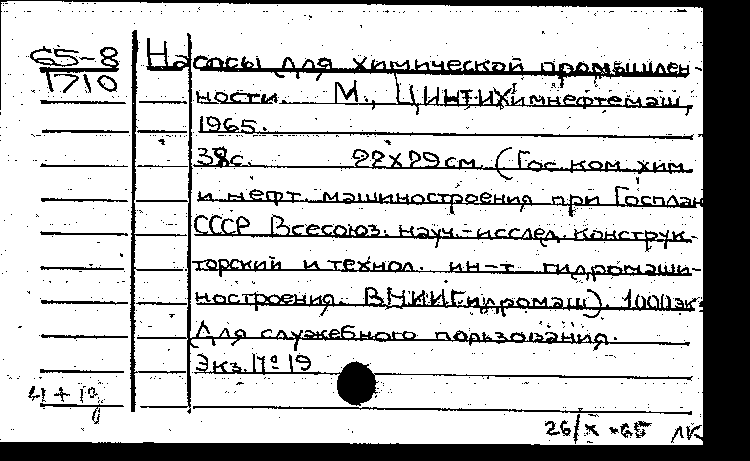 65-8
1710
Насосы для химической промышлен-
ности. М., ЦИНТИХимнефтемаш,
1965.
38с. 22х29см. (Гос. ком. хим.
и нефт. машиностроения при Госплан
СССР Всесоюз. науч.-исслед. конструк-
торский и технол. ин-т гидромаши-
ностроения. ВНИИГидромаш). 1000экз
Для служебного пользования.
Экз. № 19
26/X-65 ЛК